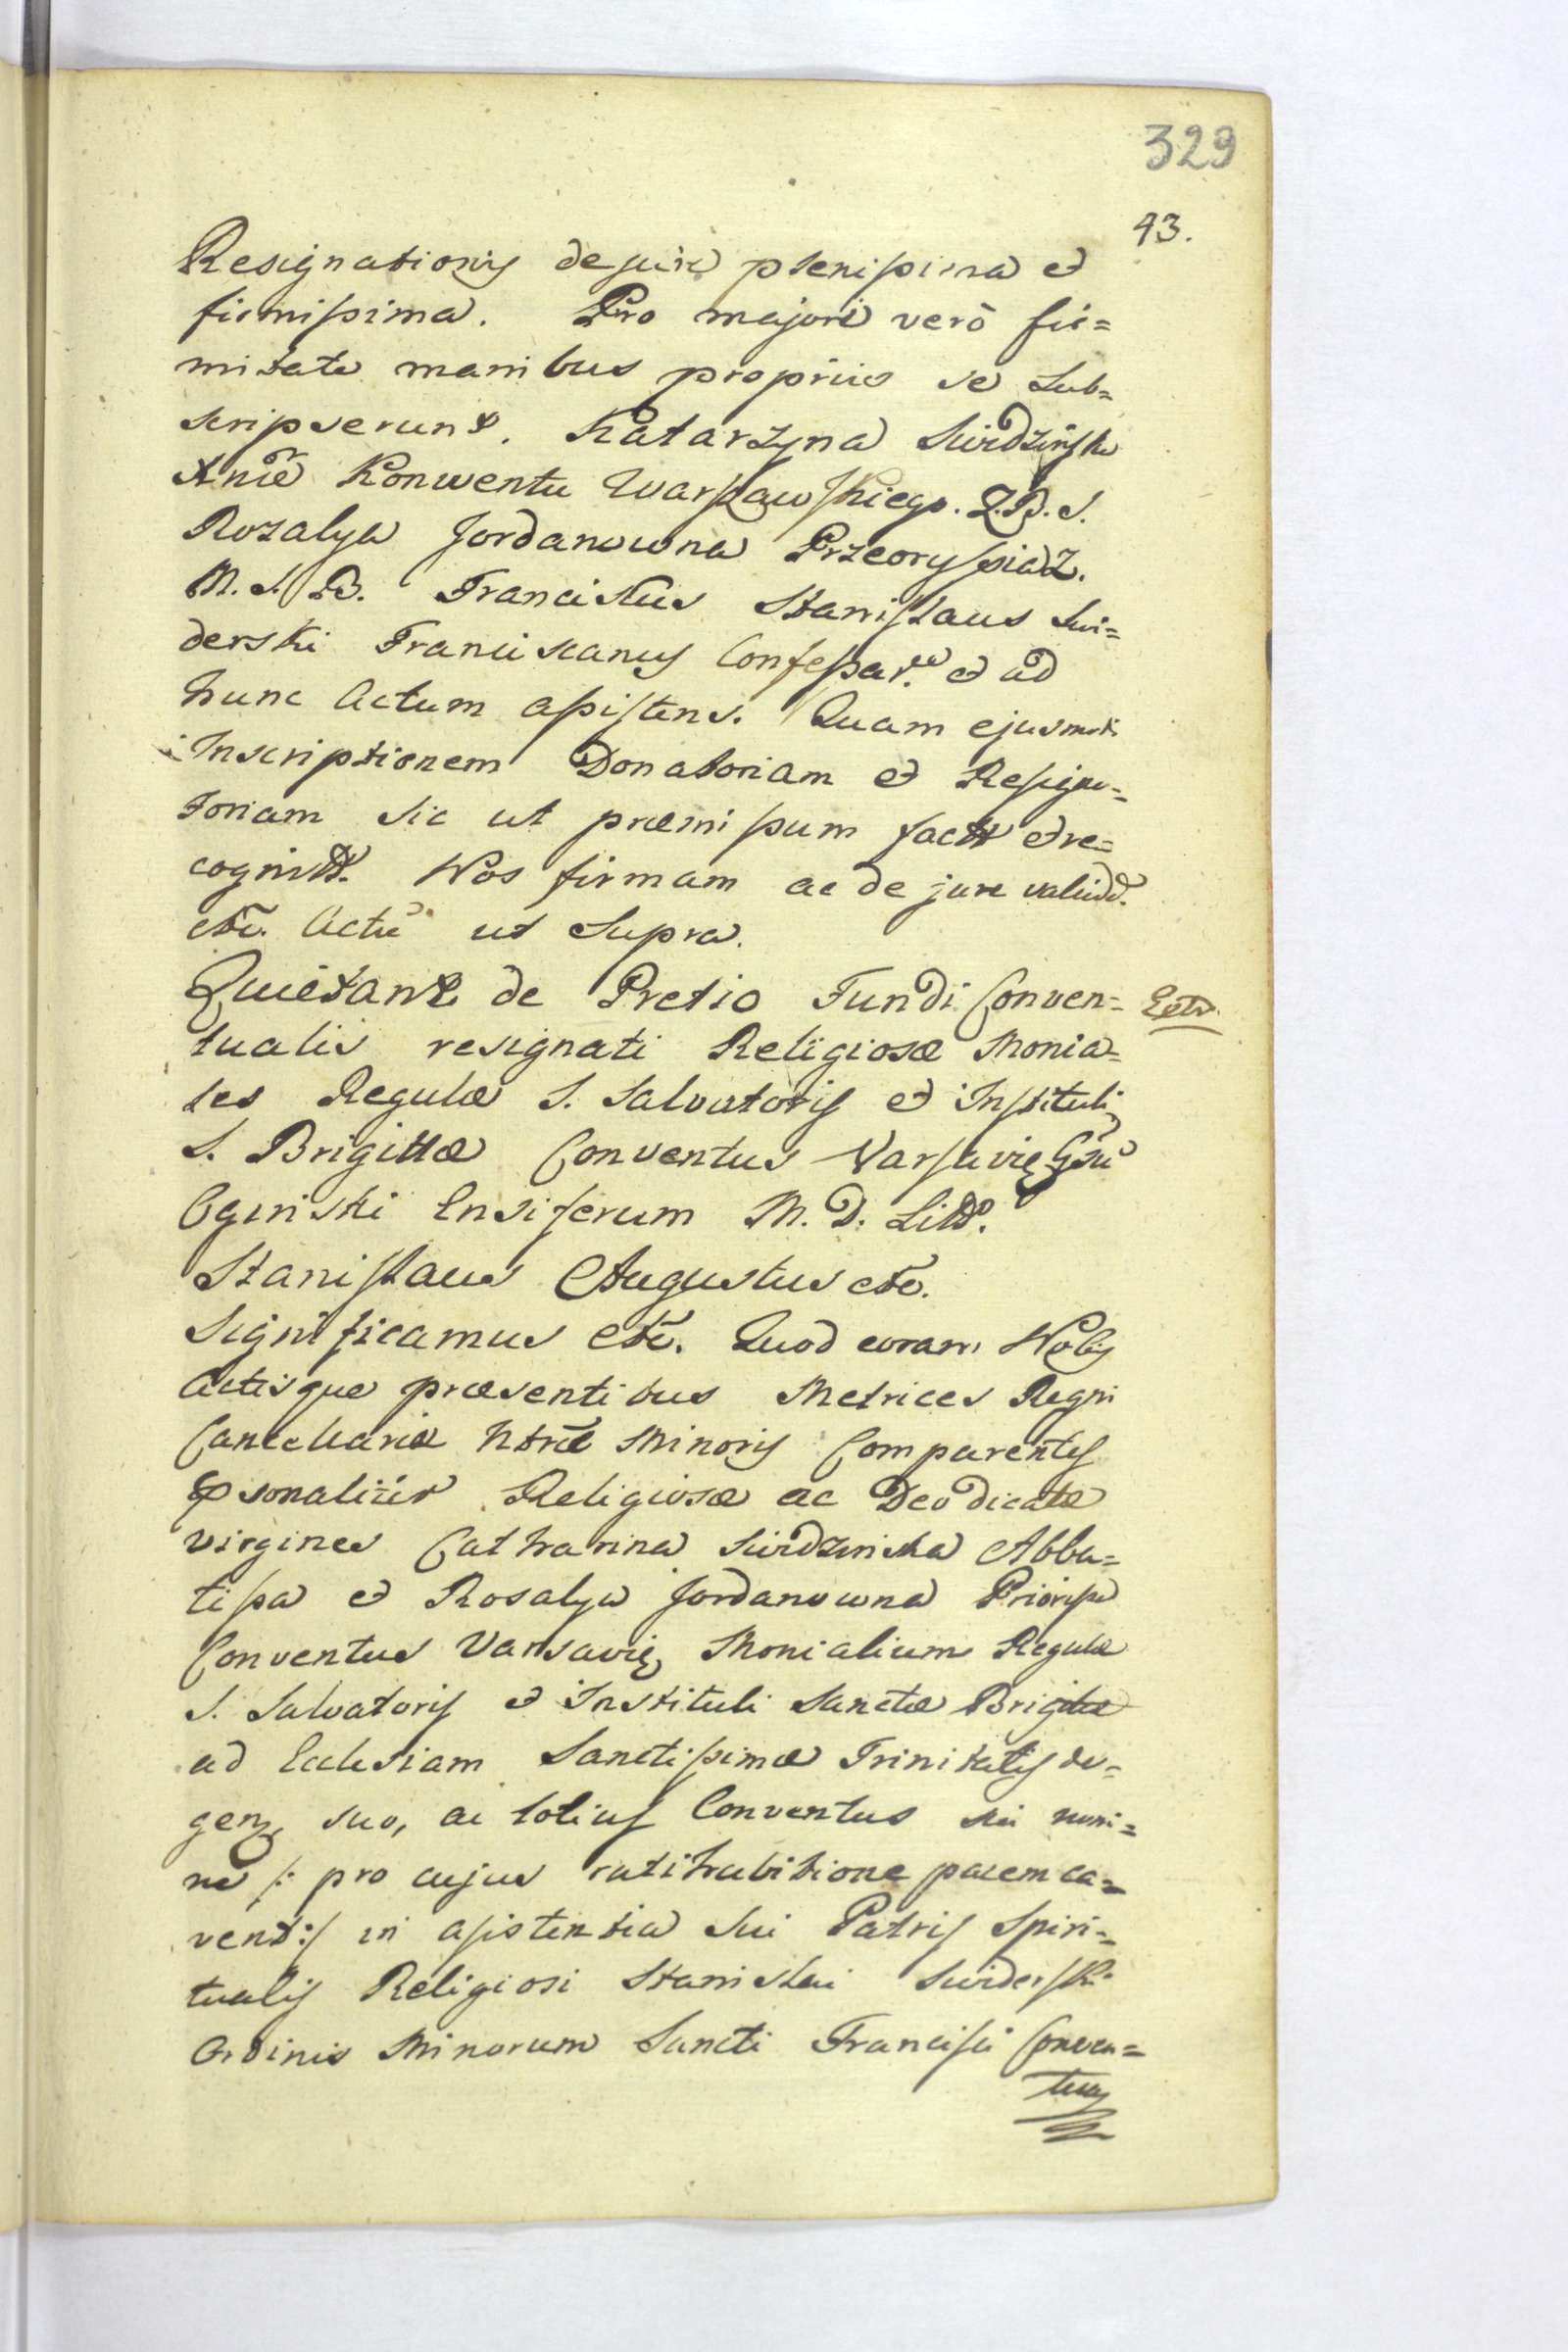 329
43.
Resignationis de jure plenissima et
firmissima. Pro majori verò fir=
mitate manibus propriis se sub=
scripserunt. Katarzyna Swidzińska
Xnie Konwentu Warszawskiego. Z. B. S.
Rozalya Jordanowna Przeoryssa Z.
M. S. B. Franciskus Stanislaus Swi=
derski Franciscanus Confessar. et ad
hunc Actum assistens. Quam ejusmodi
Inscriptionem Donatoriam et Resigna=
toriam sic ut præmissum fact et re=
cognitt. Nos firmam ac de jure validd.
etc. Actũ ut supra.
Quietant de Pretio Fundi Conven= Extr.
tualis resignati Religiosæ Monia=
les Regulæ S. Salvatoris et Instituti
S. Brigittæ Conventus Varsavię Gsũ
Oginski Ensiferum M. D. Litt.
Stanislaus Augustus etc.
Significamus etc. Quod coram Nobis
Actisque præsentibus Metrices Regni
Cancellariæ Ntræ Minoris Comparentes
psonaliter Religiosæ ac Deo dicatæ
virgines Catharina Swidzinska Abba=
tissa et Rosalya Jordanowna Priorissa
Conventus Varsavię Monialium Regulæ
S. Salvatoris et Instituti Sanctæ Brigittæ
ad Ecclesiam Sanctissimæ Trinitatis de=
gen, suo, ac totius Conventus sui nomi=
ne /: pro cujus ratihabitione pacem ca=
vent :/ in assistentia sui Patris Spiri=
tualis Religiosi Stanislai Swiderski
Ordinis Minorum Sancti Francisci Conven=
tuay